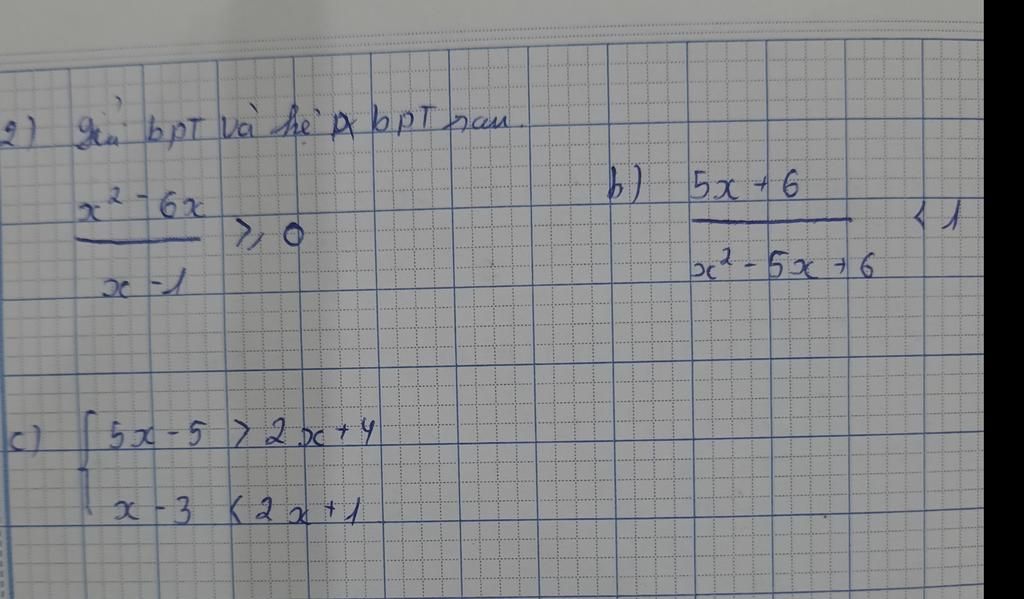 2) Giải bpT và hệ bpT sau.
x² - 6x
b) 5x + 6
≥ 0
< 1
x - 1
x² - 5x + 6
c) { 5x - 5 > 2x + 4
x - 3 < 2x + 1